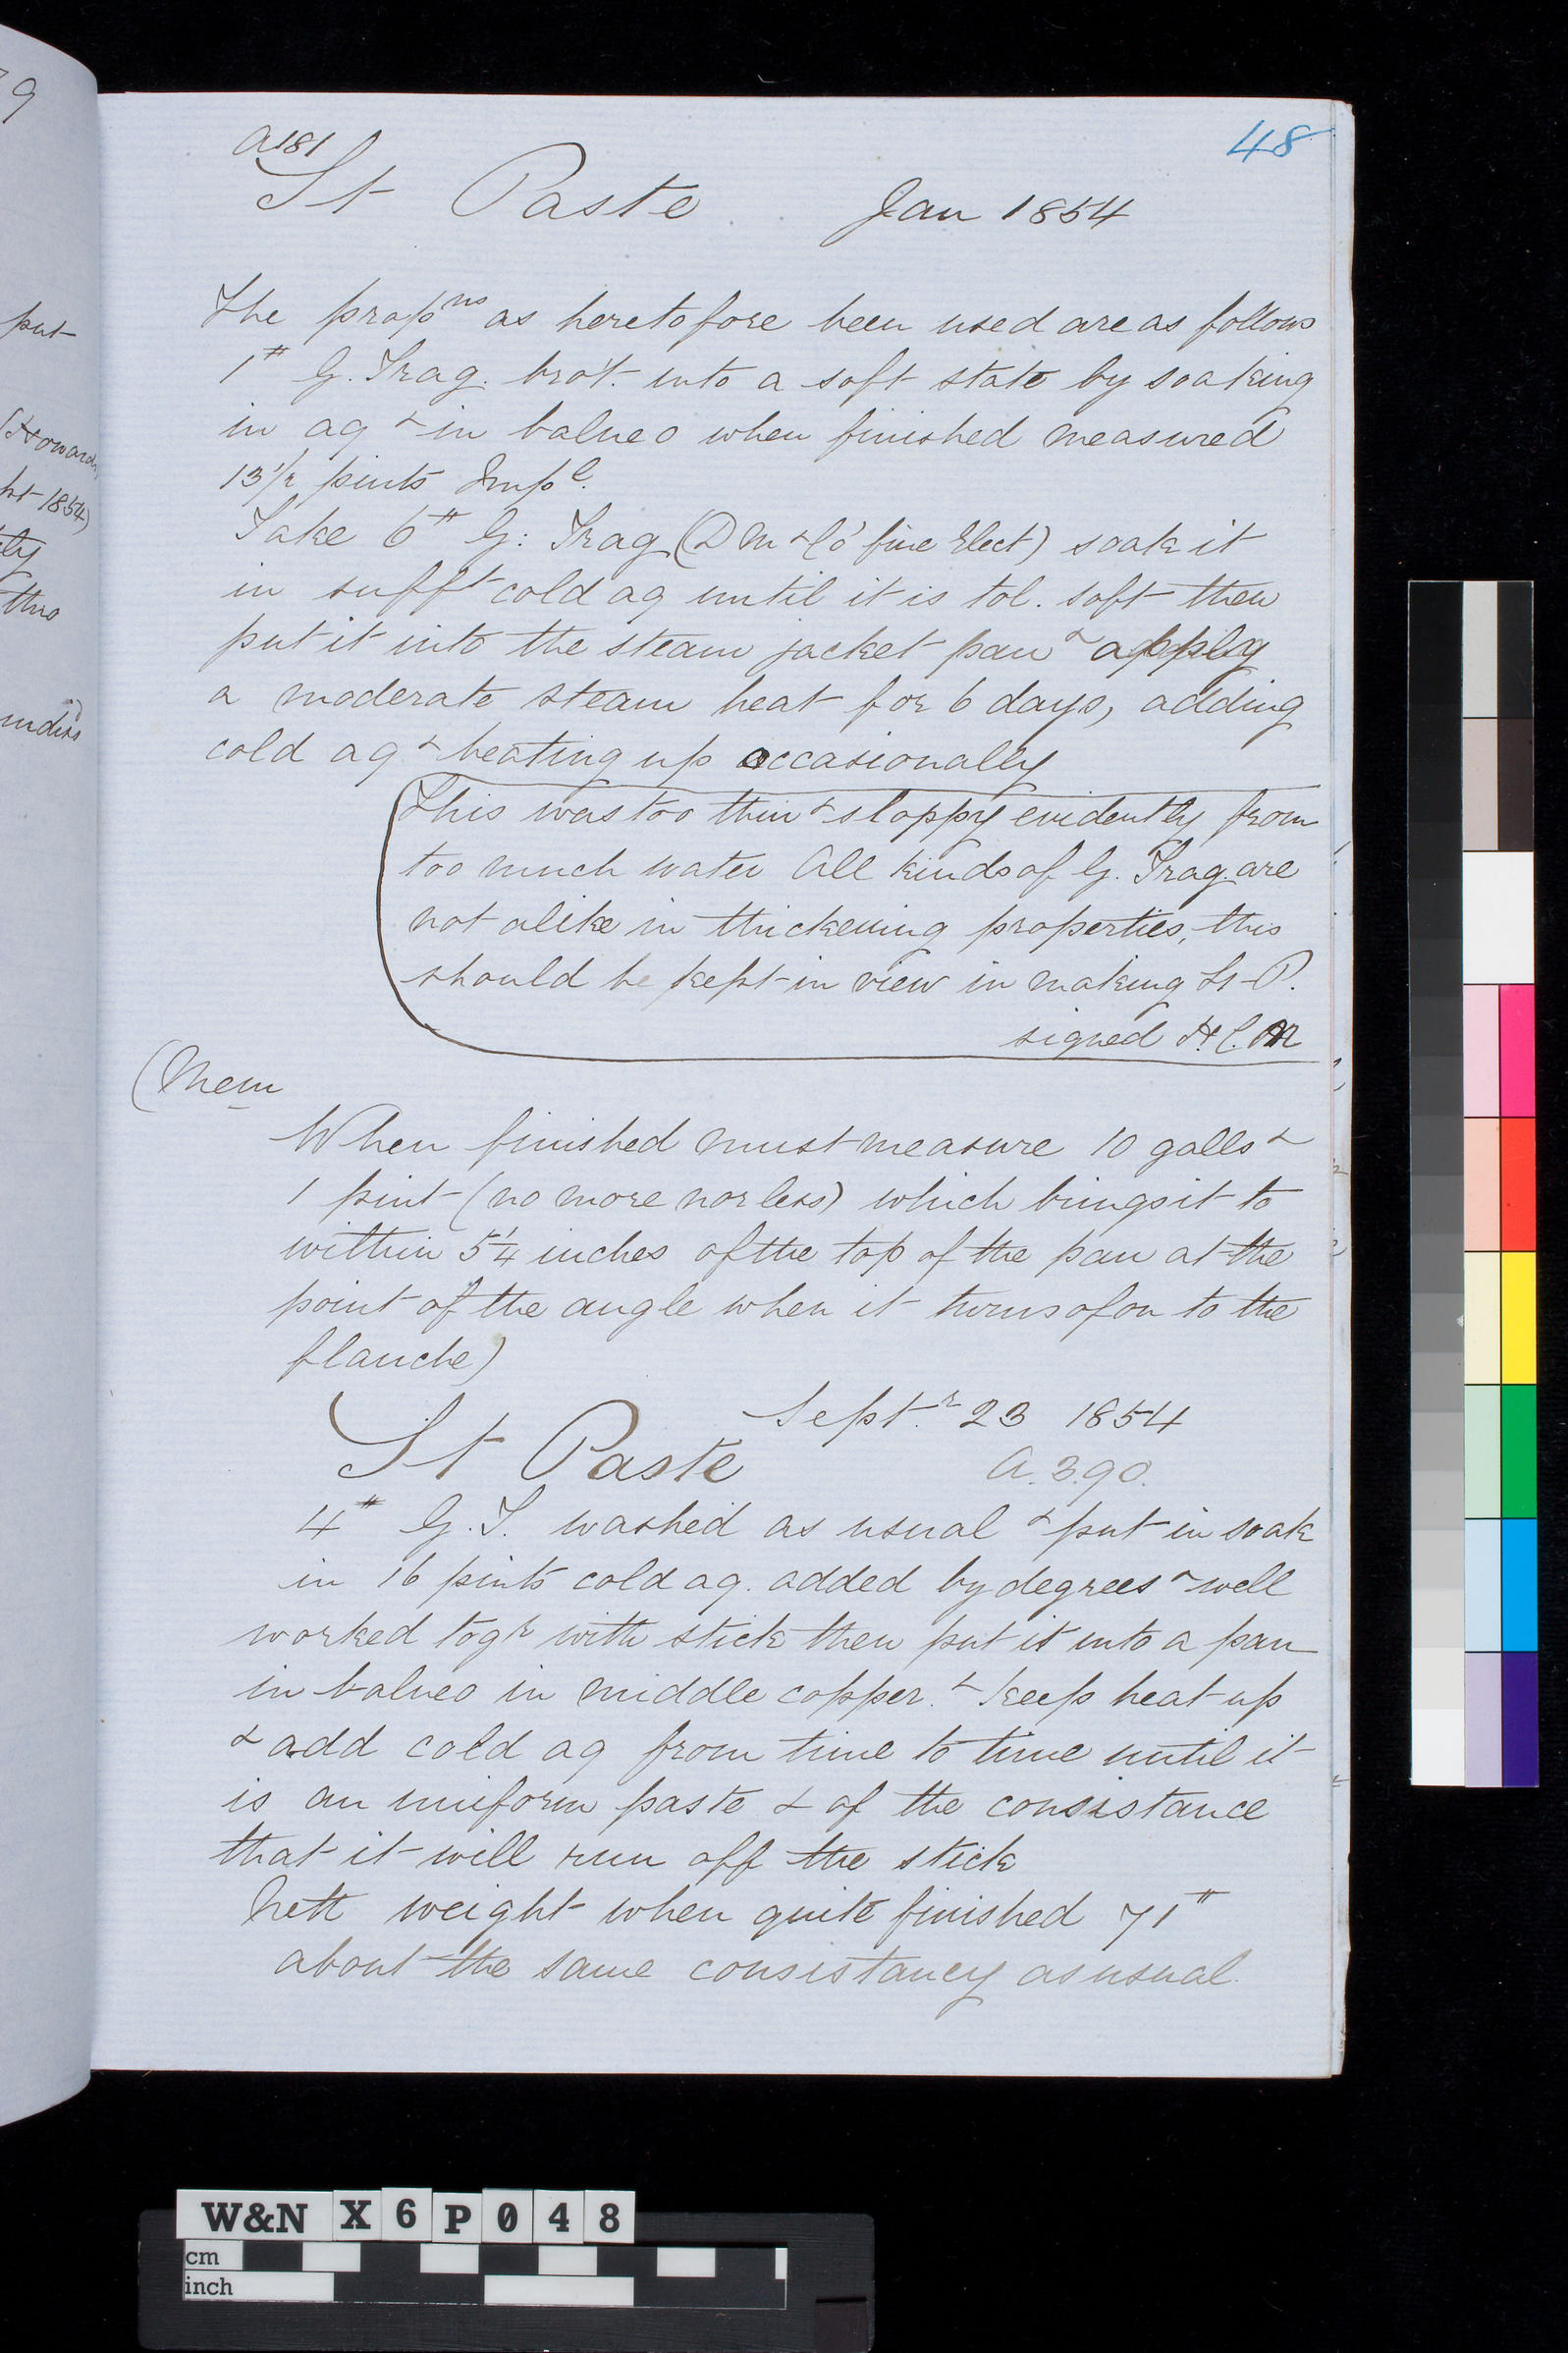 79
put
(Howards
pt 1854)
ily
thus
48
A181
St Paste Jan 1854
The propns as heretofore been used are as follows
1# G. Trag. bro't. into a soft state by soaking
in aq & in balneo when finished measured
13½ pints Impl.
Take 6# G: Trag (D M & Co' fine Elect) soak it
in suff't cold aq until it is tol. soft then
put it into the steam jacket pan & apply
a moderate steam heat for 6 days, adding
cold aq & beating up occasionally
This was too thin & sloppy evidently from
too much water All kinds of G. Trag. are
not alike in thickening properties, this
should be kept in view in making St P.
signed H.C.M
(Mem
When finished must measure 10 galls &
1 pint (no more nor less) which brings it to
within 5¼ inches of the top of the pan at the
point of the angle when it turns of on to the
flanche)
St Paste Sept.r 23 1854
A.390.
4# G.T. washed as usual & put in soak
in 16 pints cold aq. added by degrees & well
worked togr with stick then put it into a pan
in balneo in middle copper. & keep heat up
& add cold aq from time to time until it
is an uniform paste & of the consistance
that it will run off the stick
Nett weight when quite finished 71#
about the same consistancy as usual.
W&N X6P048
cm
inch